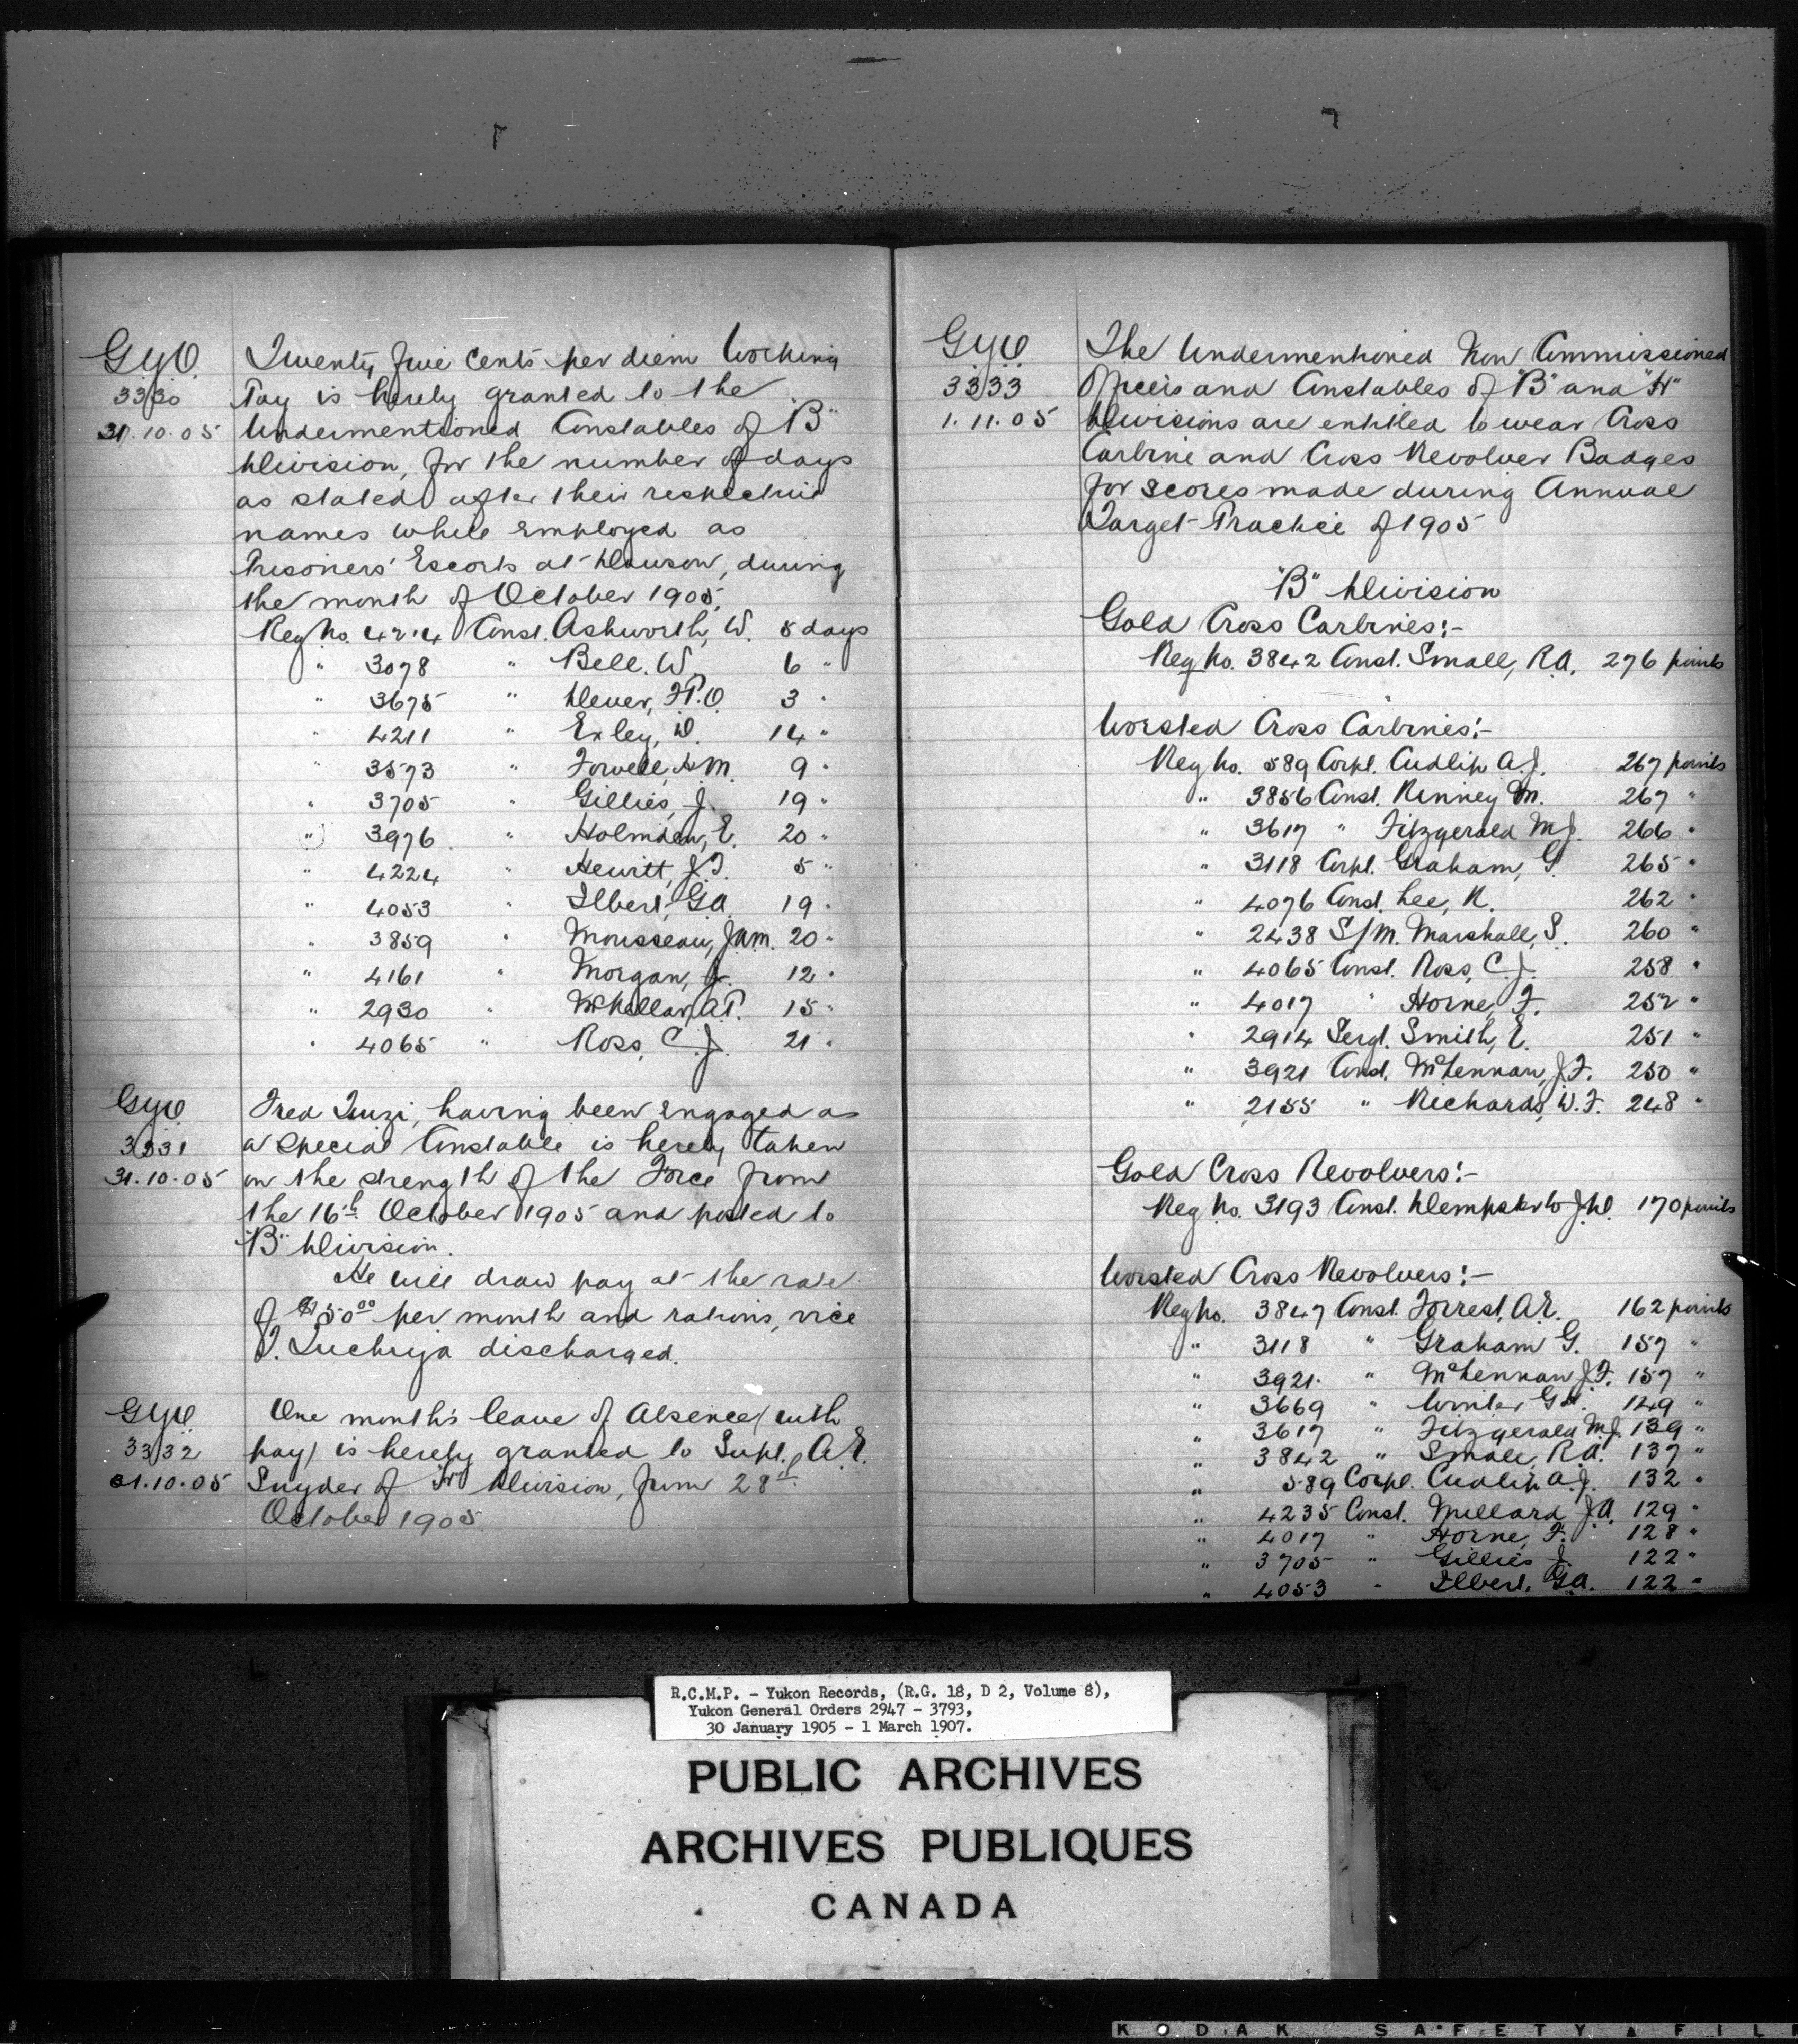 G.Y.O.
3330
31.10.05
Twenty five cents per diem Working
Pay is hereby granted to the
Undermentioned Constables of "B"
Division, for the number of days
as stated after their respective
names while employed as
Prisoners' Escorts at Dawson, during
the month of October 1905.
Reg No. 4214 Const. Ashworth, W. 8 days
" 3078 " Bell. W. 6 "
" 3675 " Dever, P.O. 3 "
" 4211 " Exley, D. 14 "
" 3573 " Forvell, A.M. 9 "
" 3705 " Gillies, J. 19 "
" 3976 " Holmden, E. 20 "
" 4224 " Hewitt, J.T. 5 "
" 4053 " Ilbert, G.A. 19 "
" 3859 " Mousseau, J.A.M. 20 "
" 4161 " Morgan, J. 12 "
" 2930 " McKellar, A.P. 15 "
" 4065 " Ross, C.J. 21 "
G.Y.O.
3331
31.10.05
Fred Inuzi, having been engaged as
a special Constable is hereby taken
on the strength of the Force from
the 16th October 1905 and posted to
"B" Division.
He will draw pay at the rate
of $50.00 per month and rations, vice
T. Tuchiya discharged.
G.Y.O.
3332
31.10.05
One month's leave of Absence (with
pay) is hereby granted to Supt. A.E.
Snyder of "H" Division, from 28th
October 1905.
G.Y.O.
3333
1.11.05
The Undermentioned Non Commissioned
Officers and Constables of "B" and "H"
Divisions are entitled to wear Cross
Carbine and Cross Revolver Badges
for scores made during Annual
Target Practice of 1905
"B" Division
Gold Cross Carbines:-
Reg No. 3842 Const. Small, R.A. 276 points
Worsted Cross Carbines:-
Reg No. 589 Corpl. Cudlip A.J. 267 points
" 3856 Const. Kinney M. 267 "
" 3617 " Fitzgerald M.J. 266 "
" 3118 Corpl. Graham, G. 265 "
" 4076 Const. Lee, R. 262 "
" 2438 S/M. Marshall, S. 260 "
" 4065 Const. Ross, C.J. 258 "
" 4017 " Horne, F. 252 "
" 2914 Sergt. Smith, E. 251 "
" 3921 Const. McLennan, J.F. 250 "
" 2155 " Richards, W.F. 248 "
Gold Cross Revolvers:-
Reg No. 3193 Const. Dempster J.D. 170 points
Worsted Cross Revolvers:-
Reg No. 3847 Const. Forrest, A.E. 162 points
" 3118 " Graham G. 157 "
" 3921. " McLennan J.F. 157 "
" 3669 " Winter G.H. 149 "
" 3617 " Fitzgerald M.J. 139 "
" 3842 " Small, R.A. 137 "
" 589 Corpl. Cudlip A.J. 132 "
" 4235 Const. Millard J.A. 129 "
" 4017 " Horne, F. 128 "
" 3705 " Gillies J. 122 "
" 4053 " Ilbert, G.A. 122 "
R.C.M.P. - Yukon Records, (R.G. 18, D 2, Volume 8),
Yukon General Orders 2947 - 3793,
30 January 1905 - 1 March 1907.
PUBLIC ARCHIVES
ARCHIVES PUBLIQUES
CANADA
KODAK SAFETY FIL